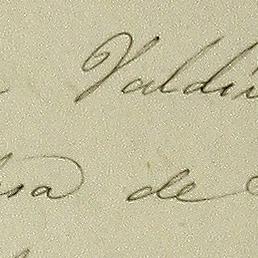 Valdi
sa de